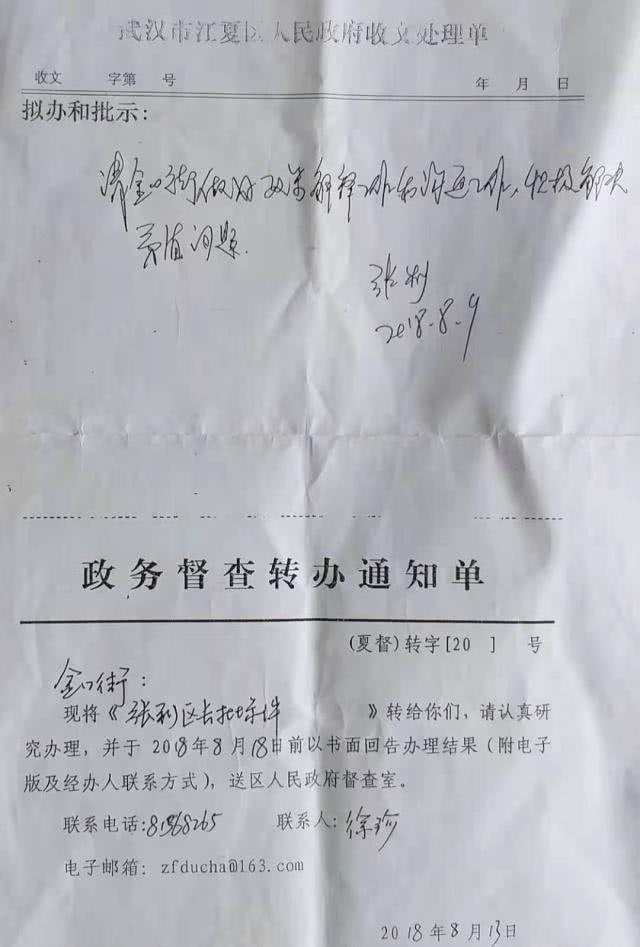 武汉市江夏区人民政府收文处理单
收文 字第 号 年 月 日
拟办和批示:
请金口街做好政策解释工作和沟通工作，积极解决
矛盾问题.
张利
2018.8.9
政务督查转办通知单
(夏督)转字[20 ] 号
金口街:
现将《张利区长批示件 》转给你们，请认真研
究办理，并于 2018年8月18日前以书面回告办理结果(附电子
版及经办人联系方式)，送区人民政府督查室。
联系电话:81568265 联系人:徐珍
电子邮箱: zfducha@163.com
2018年8月13日